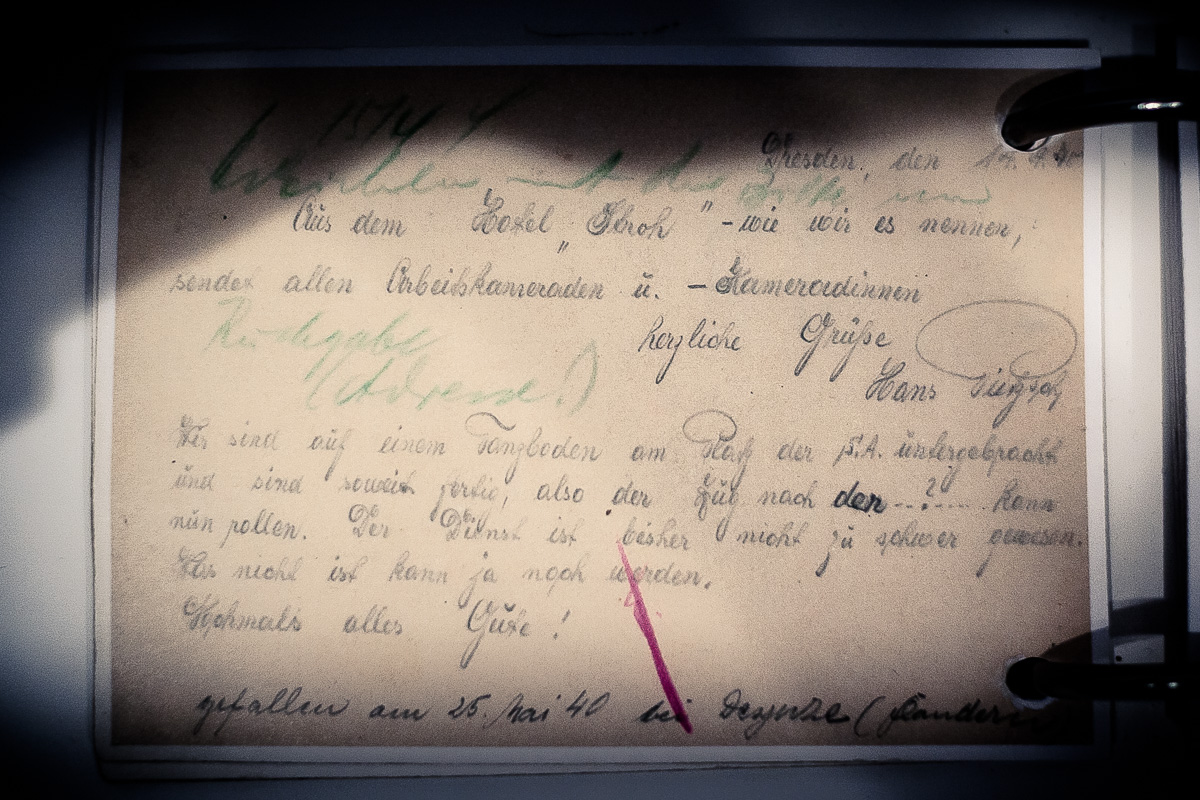 15/4 4
Dresden, den 14. 4. 40
mit der
Aus dem Hotel „Stroh" - wie wir es nennen,
sendet allen Arbeitskameraden u. - Kameradinnen
Rückgabe
herzliche Grüße
(Adresse!)
Hans
Wir sind auf einem Tanzboden am Platz der S.A. untergebracht
und sind soweit fertig, also der Zug nach der ...?..... kann
nun rollen. Der Dienst ist bisher nicht zu schwer gewesen.
Was nicht ist kann ja noch werden.
Nochmals alles Gute!
gefallen am 25. Mai 40 bei Deynze (Flandern